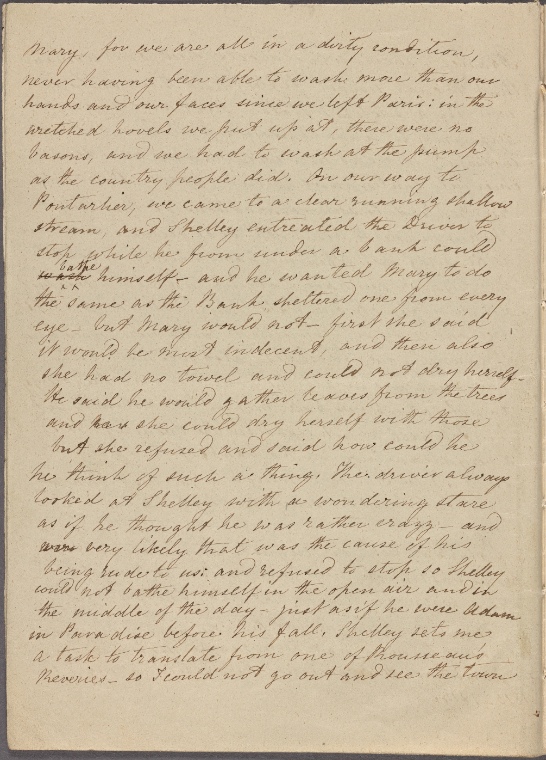 Mary, for we are all in a dirty condition,
never having been able to wash more than our
hands and our faces since we left Paris: in the
wretched hovels we put up at, there were no
basons, and we had to wash at the pump
as the country people did. On our way to
Pontarlier, we came to a clear running shallow
stream, and Shelley entreated the Driver to
stop while he from under a bank could
wash bathe himself – and he wanted Mary to do
the same as the Bank sheltered one from every
eye – but Mary would not – first she said
it would be most indecent, and then also
she had no towel and could not dry herself –
He said he would gather leaves from the trees
and she could dry herself with those
but she refused and said how could he
he think of such a thing. The driver always
looked at Shelley with a wondering stare
as if he thought he was rather crazy – and
very likely that was the cause of his
being rude to us: and refused to stop so Shelley
could not bathe himself in the open air and in
the middle of the day – just as if he were Adam
in Paradise before his fall. Shelley sets me
a task to translate from one of Rousseau's
Reveries – so I could not go out and see the town